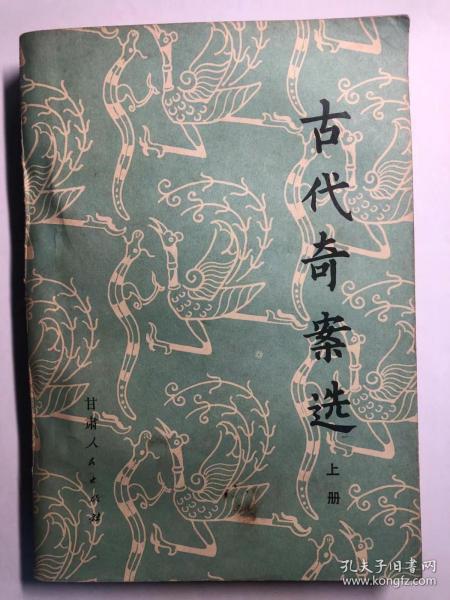 古代奇案选
上册
甘肃人民出版社
孔夫子旧书网
www.kongfz.com